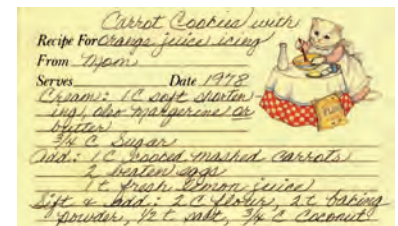 Carrot Cookies with
Recipe For Orange juice icing
From Mom
Serves Date 1978
Cream: 1 C soft shorten-
ing, also margerine or
butter
3/4 C Sugar
Add: 1 C cooced mashed carrots
2 beaten eggs
1 t fresh lemon juice
Sift & add: 2 C flour, 2 t baking
powder, 1/2 t salt, 3/4 C Coconut